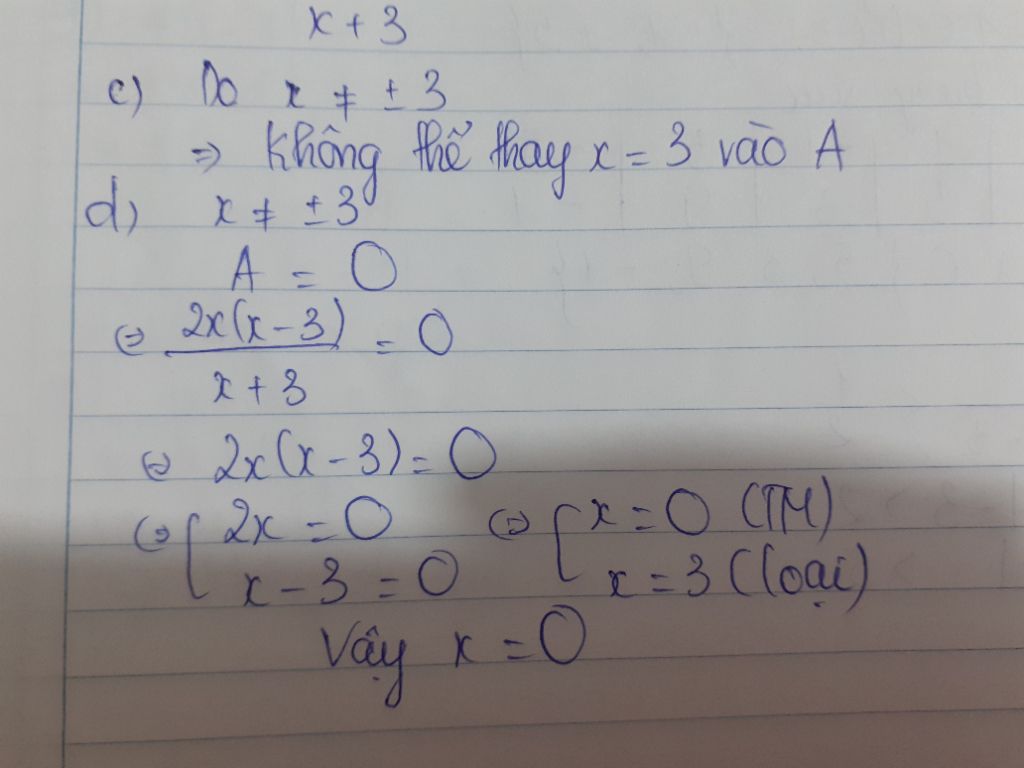 x + 3
c) Do x ≠ ± 3
⇒ Không thể thay x = 3 vào A
d) x ≠ ± 3
A = 0
⇔ 2x(x - 3) / x + 3 = 0
⇔ 2x(x - 3) = 0
⇔ [ 2x = 0 ⇔ [ x = 0 (TM)
x - 3 = 0 x = 3 (loại)
Vậy x = 0